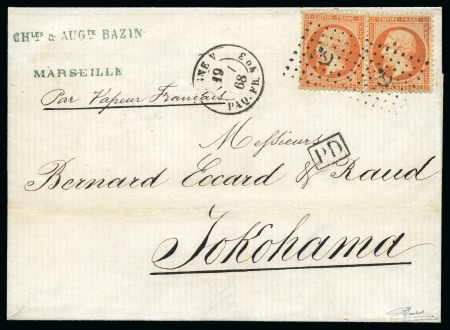 CHLES & AUGTE BAZIN
MARSEILLE
Par Vapeur Français
LIGNE V
19
68
PAQ. FR.
EMPIRE FRANC
EMPIRE FRANC
Messieurs
PD
Bernard Eccard & Raud
Yokohama